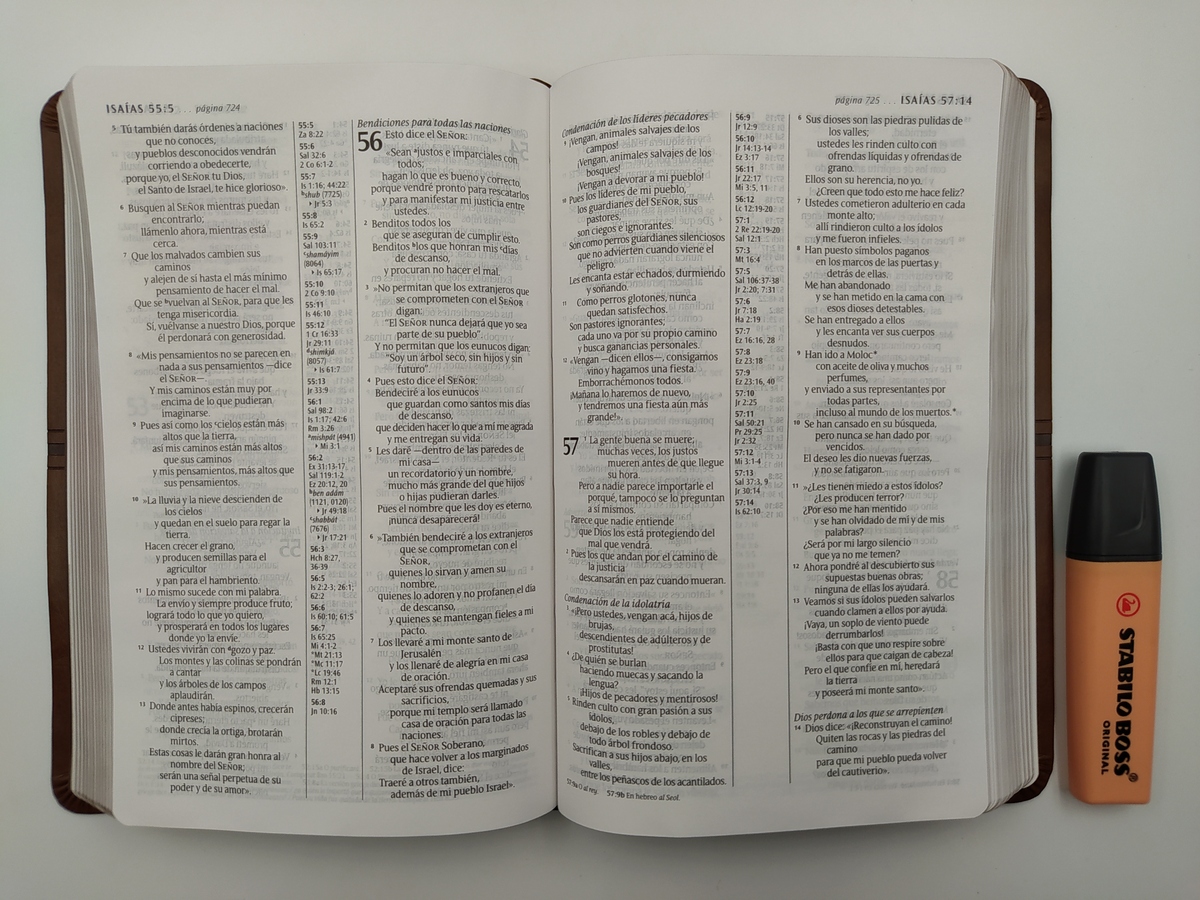 ISAÍAS 55:5 . . . página 724
5 Tú también darás órdenes a naciones
que no conocés,
y pueblos desconocidos vendrán
corriendo a obedecerte,
porque yo, el SEÑOR tu Dios,
el Santo de Israel, te hice glorioso».
6 Busquen al SEÑOR mientras puedan
encontrarlo;
llámenlo ahora, mientras está
cerca.
7 Que los malvados cambien sus
caminos
y alejen de sí hasta el más mínimo
pensamiento de hacer el mal.
Que se bvuelvan al SEÑOR, para que les
tenga misericordia.
Sí, vuélvanse a nuestro Dios, porque
él perdonará con generosidad.
8 «Mis pensamientos no se parecen en
nada a sus pensamientos —dice
el SEÑOR—.
Y mis caminos están muy por
encima de lo que pudieran
imaginarse.
9 Pues así como los ccielos están más
altos que la tierra,
así mis caminos están más altos
que sus caminos
y mis pensamientos, más altos que
sus pensamientos.
10 »La lluvia y la nieve descienden de
los cielos
y quedan en el suelo para regar la
tierra.
Hacen crecer el grano,
y producen semillas para el
agricultor
y pan para el hambriento.
11 Lo mismo sucede con mi palabra.
La envío y siempre produce fruto;
logrará todo lo que yo quiero,
y prosperará en todos los lugares
donde yo la envíe.
12 Ustedes vivirán con dgozo y paz.
Los montes y las colinas se pondrán
a cantar
y los árboles de los campos
aplaudirán.
13 Donde antes había espinos, crecerán
cipreses;
donde crecía la ortiga, brotarán
mirtos.
Estas cosas le darán gran honra al
nombre del SEÑOR;
serán una señal perpetua de su
poder y de su amor».
55:5
Za 8:22
55:6
Sal 32:6
2 Co 6:1-2
55:7
Is 1:16; 44:22
bshub (7725)
▸ Jr 5:3
55:8
Is 65:2
55:9
Sal 103:11
cshamáyim
(8064)
▸ Is 65:17
55:10
2 Co 9:10
55:11
Is 46:10
55:12
1 Cr 16:33
Jr 29:11
dshimkjá
(8057)
▸ Is 61:7
55:13
Jr 33:9
56:1
Sal 98:2
Is 1:17; 42:6
Rm 3:26
amishpát (4941)
▸ Mi 3:1
56:2
Ex 31:13-17
Sal 119:1-2
Ez 20:12, 20
bben adám
(1121, 0120)
▸ Jr 49:18
cshabbát
(7676)
▸ Jr 17:21
56:3
Hch 8:27,
36-39
56:5
Is 2:2-3; 26:1;
62:2
56:6
Is 60:10; 61:5
56:7
Is 65:25
Mi 4:1-2
*Mt 21:13
*Mc 11:17
*Lc 19:46
Rm 12:1
Hb 13:15
56:8
Jn 10:16
Bendiciones para todas las naciones
56 Esto dice el SEÑOR:
«Sean ajustos e imparciales con
todos;
hagan lo que es bueno y correcto,
porque vendré pronto para rescatarlos
y para manifestar mi justicia entre
ustedes.
2 Benditos todos los
que se aseguran de cumplir esto.
Benditos blos que honran mis cdías
de descanso,
y procuran no hacer el mal.
3 »No permitan que los extranjeros que
se comprometen con el SEÑOR
digan:
“El SEÑOR nunca dejará que yo sea
parte de su pueblo”.
Y no permitan que los eunucos digan:
“Soy un árbol seco, sin hijos y sin
futuro”.
4 Pues esto dice el SEÑOR:
Bendeciré a los eunucos
que guardan como santos mis días
de descanso,
que deciden hacer lo que a mí me agrada
y me entregan su vida.
5 Les daré —dentro de las paredes de
mi casa—
un recordatorio y un nombre,
mucho más grande del que hijos
o hijas pudieran darles.
Pues el nombre que les doy es eterno,
¡nunca desaparecerá!
6 »También bendeciré a los extranjeros
que se comprometan con el
SEÑOR,
quienes lo sirvan y amen su
nombre,
quienes lo adoren y no profanen el día
de descanso,
y quienes se mantengan fieles a mi
pacto.
7 Los llevaré a mi monte santo de
Jerusalén
y los llenaré de alegría en mi casa
de oración.
Aceptaré sus ofrendas quemadas y sus
sacrificios,
porque mi templo será llamado
casa de oración para todas las
naciones.
8 Pues el SEÑOR Soberano,
que hace volver a los marginados
de Israel, dice:
Traeré a otros también,
además de mi pueblo Israel».
página 725 . . . ISAÍAS 57:14
Condenación de los líderes pecadores
9 ¡Vengan, animales salvajes de los
campos!
¡Vengan, animales salvajes de los
bosques!
¡Vengan a devorar a mi pueblo!
10 Pues los líderes de mi pueblo,
los guardianes del SEÑOR, sus
pastores,
son ciegos e ignorantes.
Son como perros guardianes silenciosos
que no advierten cuando viene el
peligro.
Les encanta estar echados, durmiendo
y soñando.
11 Como perros glotones, nunca
quedan satisfechos.
Son pastores ignorantes;
cada uno va por su propio camino
y busca ganancias personales.
12 «Vengan —dicen ellos—, consigamos
vino y hagamos una fiesta.
Emborrachémonos todos.
¡Mañana lo haremos de nuevo,
y tendremos una fiesta aún más
grande!».
57 1 La gente buena se muere;
muchas veces, los justos
mueren antes de que llegue
su hora.
Pero a nadie parece importarle el
porqué, tampoco se lo preguntan
a sí mismos.
Parece que nadie entiende
que Dios los está protegiendo del
mal que vendrá.
2 Pues los que andan por el camino de
la justicia
descansarán en paz cuando mueran.
Condenación de la idolatría
3 «¡Pero ustedes, vengan acá, hijos de
brujas,
descendientes de adúlteros y de
prostitutas!
4 ¿De quién se burlan
haciendo muecas y sacando la
lengua?
¡Hijos de pecadores y mentirosos!
5 Rinden culto con gran pasión a sus
ídolos,
debajo de los robles y debajo de
todo árbol frondoso.
Sacrifican a sus hijos abajo, en los
valles,
entre los peñascos de los acantilados.
57:9a O al rey. 57:9b En hebreo al Seol.
56:9
Jr 12:9
56:10
Jr 14:13-14
Ez 3:17
56:11
Jr 22:17
Mi 3:5, 11
56:12
Lc 12:19-20
57:1
2 Re 22:19-20
Sal 12:1
57:3
Mt 16:4
57:5
Sal 106:37-38
Jr 2:20; 7:31
57:6
Jr 7:18
Ha 2:19
57:7
Ez 16:16, 28
57:8
Ez 23:18
57:9
Ez 23:16, 40
57:10
Jr 2:25
57:11
Sal 50:21
Pr 29:25
Jr 2:32
57:12
Mi 3:1-4
57:13
Sal 37:3, 9
Jr 30:14
57:14
Is 62:10
6 Sus dioses son las piedras pulidas de
los valles;
ustedes les rinden culto con
ofrendas líquidas y ofrendas de
grano.
Ellos son su herencia, no yo.
¿Creen que todo esto me hace feliz?
7 Ustedes cometieron adulterio en cada
monte alto;
allí rindieron culto a los ídolos
y me fueron infieles.
8 Han puesto símbolos paganos
en los marcos de las puertas y
detrás de ellas.
Me han abandonado
y se han metido en la cama con
esos dioses detestables.
Se han entregado a ellos
y les encanta ver sus cuerpos
desnudos.
9 Han ido a Moloc*
con aceite de oliva y muchos
perfumes,
y enviado a sus representantes por
todas partes,
incluso al mundo de los muertos.*
10 Se han cansado en su búsqueda,
pero nunca se han dado por
vencidos.
El deseo les dio nuevas fuerzas,
y no se fatigaron.
11 »¿Les tienen miedo a estos ídolos?
¿Les producen terror?
¿Por eso me han mentido
y se han olvidado de mí y de mis
palabras?
¿Será por mi largo silencio
que ya no me temen?
12 Ahora pondré al descubierto sus
supuestas buenas obras;
ninguna de ellas los ayudará.
13 Veamos si sus ídolos pueden salvarlos
cuando clamen a ellos por ayuda.
¡Vaya, un soplo de viento puede
derrumbarlos!
¡Basta con que uno respire sobre
ellos para que caigan de cabeza!
Pero el que confíe en mí, heredará
la tierra
y poseerá mi monte santo».
Dios perdona a los que se arrepienten
14 Dios dice: «¡Reconstruyan el camino!
Quiten las rocas y las piedras del
camino
para que mi pueblo pueda volver
del cautiverio».
STABILO BOSS®
ORIGINAL